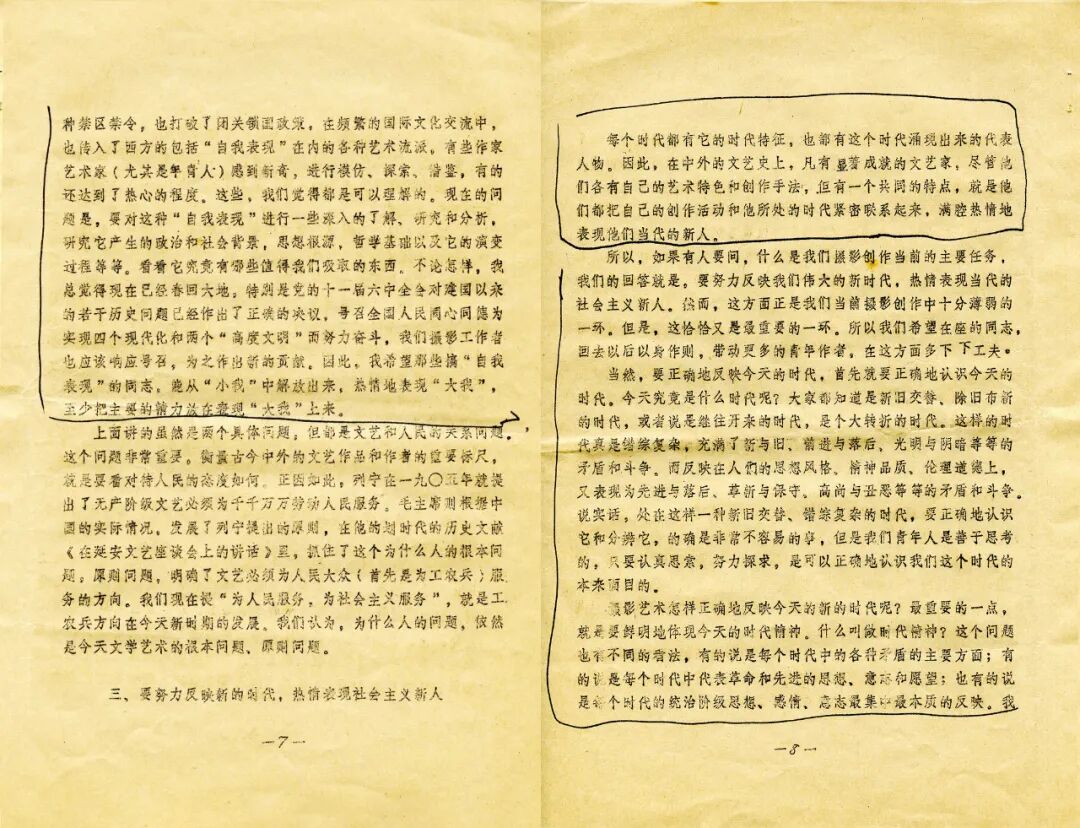 种禁区禁令，也打破了闭关锁国政策，在频繁的国际文化交流中，
也传入了西方的包括“自我表现”在内的各种艺术流派。有些作家
艺术家（尤其是年青人）感到新奇，进行模仿、探索、借鉴，有的
还达到了热心的程度。这些，我们觉得都是可以理解的。现在的问
题是，要对这种“自我表现”进行一些深入的了解、研究和分析，
研究它产生的政治和社会背景，思想根源，哲学基础以及它的演变
过程等等。看看它究竟有哪些值得我们吸取的东西。不论怎样，我
总觉得现在已经春回大地。特别是党的十一届六中全会对建国以来
的若干历史问题已经作出了正确的决议，号召全国人民同心同德为
实现四个现代化和两个“高度文明”而努力奋斗，我们摄影工作者
也应该响应号召，为之作出新的贡献。因此，我希望那些搞“自我
表现”的同志，能从“小我”中解放出来，热情地表现“大我”，
至少把主要的精力放在表现“大我”上来。
上面讲的虽然是两个具体问题，但都是文艺和人民的关系问题。
这个问题非常重要。衡量古今中外的文艺作品和作者的重要标尺，
就是要看对待人民的态度如何。正因如此，列宁在一九〇五年就提
出了无产阶级文艺必须为千千万万劳动人民服务。毛主席则根据中
国的实际情况，发展了列宁提出的原则，在他的划时代的历史文献
《在延安文艺座谈会上的讲话》里，抓住了这个为什么人的根本问
题，原则问题，明确了文艺必须为人民大众（首先是为工农兵）服
务的方向。我们现在提“为人民服务，为社会主义服务”，就是工
农兵方向在今天新时期的发展。我们认为，为什么人的问题，依然
是今天文学艺术的根本问题、原则问题。
三、要努力反映新的时代，热情表现社会主义新人
—7—
每个时代都有它的时代特征，也都有这个时代涌现出来的代表
人物。因此，在中外的文艺史上，凡有显著成就的文艺家，尽管他
们各有自己的艺术特色和创作手法，但有一个共同的特点，就是他
们都把自己的创作活动和他所处的时代紧密联系起来，满腔热情地
表现他们当代的新人。
所以，如果有人要问，什么是我们摄影创作当前的主要任务，
我们的回答就是。要努力反映我们伟大的新时代，热情表现当代的
社会主义新人。然而，这方面正是我们当前摄影创作中十分薄弱的
一环。但是，这恰恰又是最重要的一环。所以我们希望在座的同志，
回去以后以身作则，带动更多的青年作者，在这方面多下下工夫。
当然，要正确地反映今天的时代，首先就要正确地认识今天的
时代。今天究竟是什么时代呢？大家都知道是新旧交替、除旧布新
的时代，或者说是继往开来的时代，是个大转折的时代。这样的时
代真是错综复杂，充满了新与旧、前进与落后、光明与阴暗等等的
矛盾和斗争。而反映在人们的思想风格、精神品质、伦理道德上，
又表现为先进与落后、革新与保守、高尚与丑恶等等的矛盾和斗争。
说实话，处在这样一种新旧交替、错综复杂的时代，要正确地认识
它和分辨它，的确是非常不容易的事，但是我们青年人是善于思考
的，只要认真思索，努力探求，是可以正确地认识我们这个时代的
本来面目的。
摄影艺术怎样正确地反映今天的新的时代呢？最重要的一点，
就是要鲜明地体现今天的时代精神。什么叫做时代精神？这个问题
也有不同的看法，有的说是每个时代中的各种矛盾的主要方面；有
的说是每个时代中代表革命和先进的思想、意志和愿望；也有的说
是每个时代的统治阶级思想、感情、意志最集中最本质的反映。我
—8—